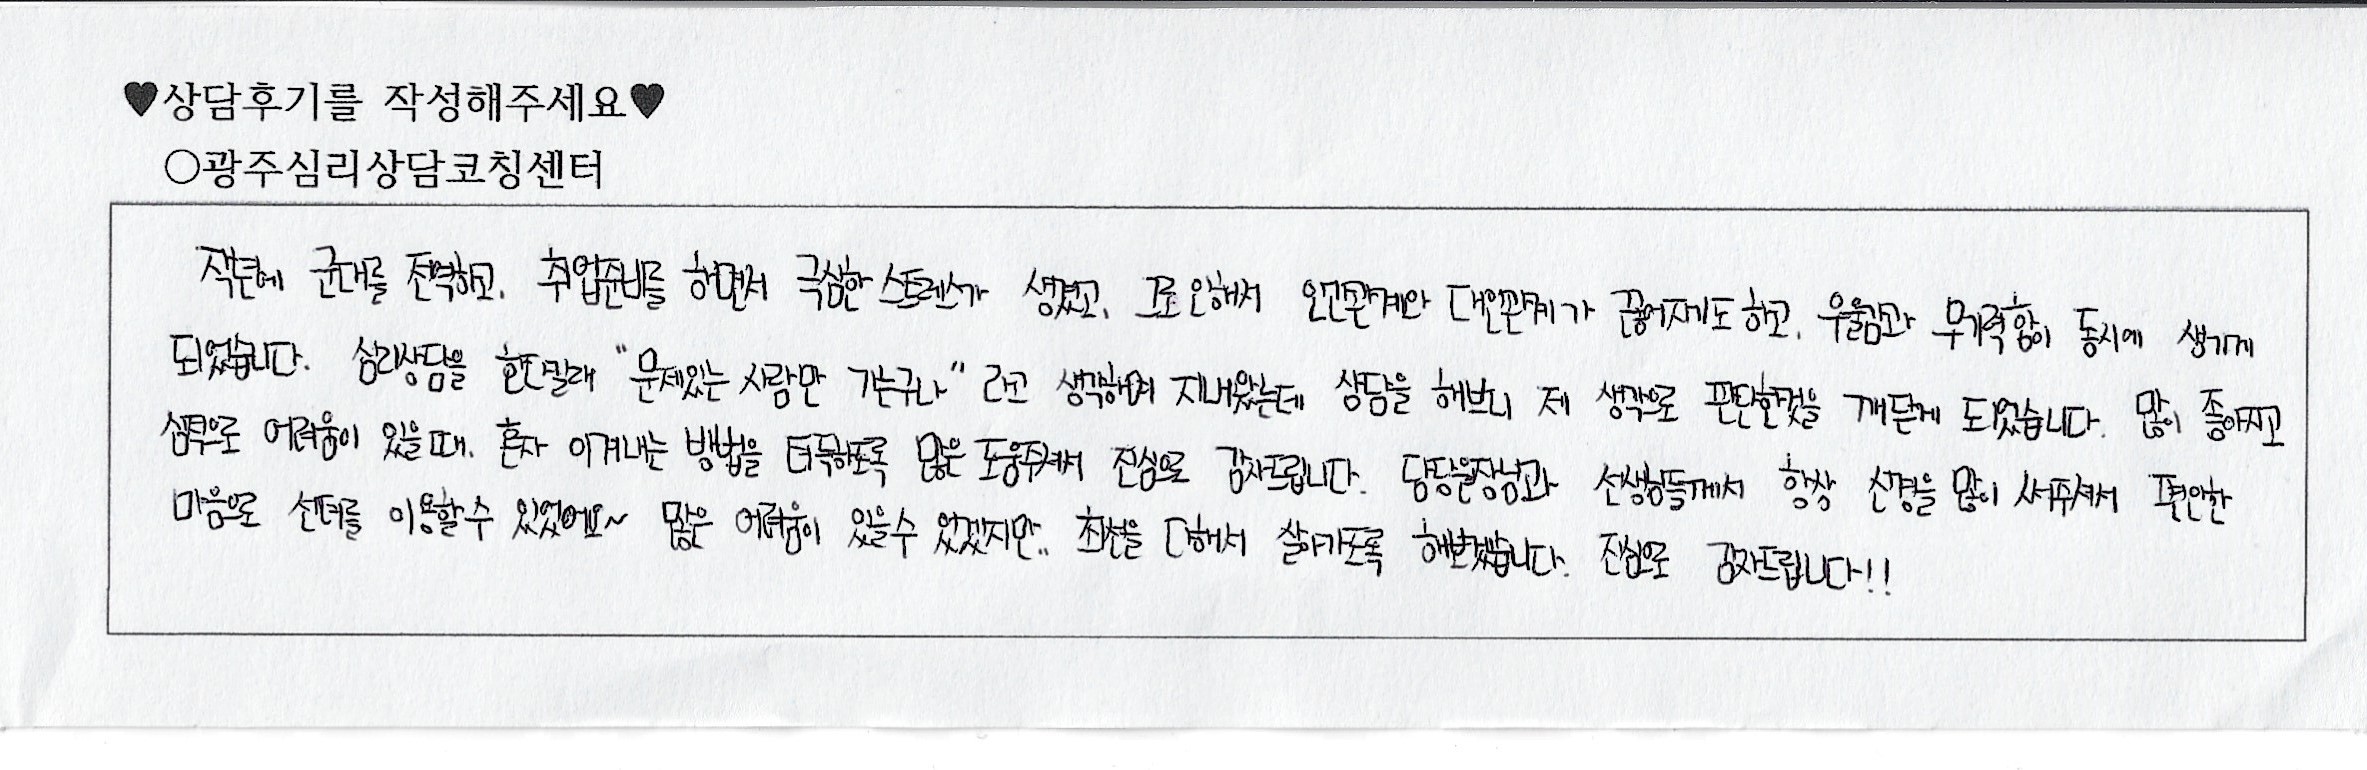 ♥상담후기를 작성해주세요♥
○광주심리상담코칭센터
작년에 군대를 전역하고, 취업준비를 하면서 극심한 스트레스가 생겼고, 그로 인해서 인간관계와 대인관계가 끊어지기도 하고, 우울감과 무기력함이 동시에 생기게
되었습니다. 심리상담을 한다길래 "문제있는 사람만 가는구나" 라고 생각하며 지내왔는데 상담을 해보니 제 생각으로 판단한것을 깨닫게 되었습니다. 많이 좋아지고
심적으로 어려움이 있을때, 혼자 이겨내는 방법을 터득하도록 많은 도움주셔서 진심으로 감사드립니다. 선생님들께서 항상 신경을 많이 써주셔서 편안한
마음으로 센터를 이용할수 있었어요~ 많은 어려움이 있을수 있겠지만.. 최선을 다해서 살아가도록 해보겠습니다. 진심으로 감사드립니다!!